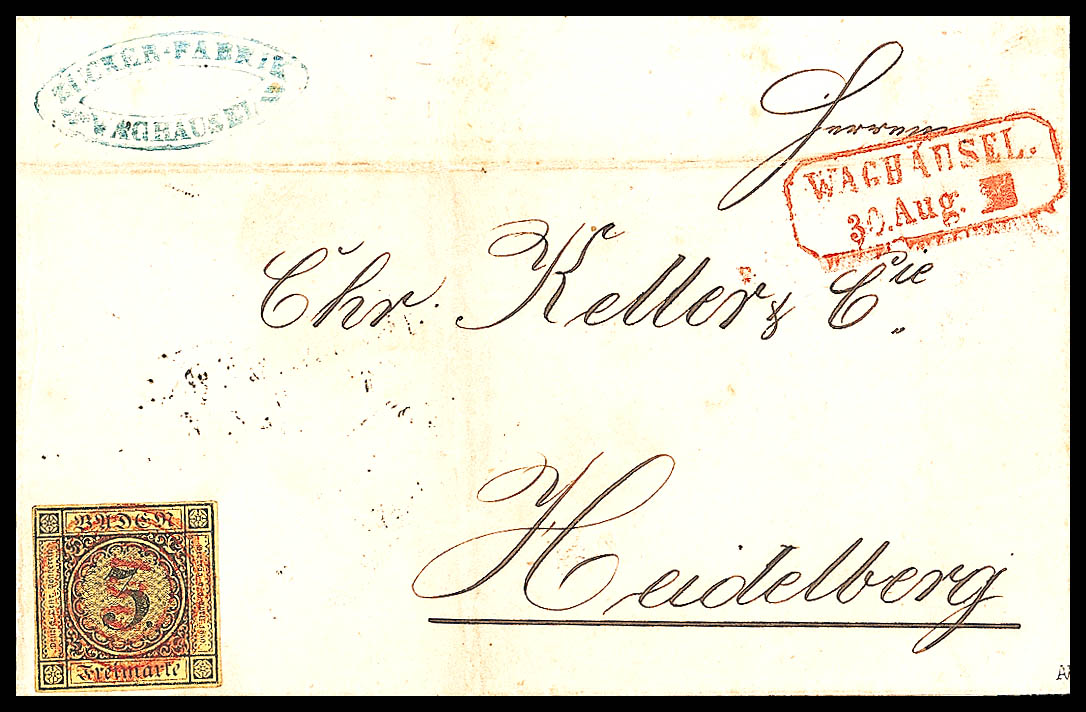 ZUCKER-FABRIK
WAGHÄUSEL
Herren
WAGHÄUSEL.
30. Aug.
Chr. Keller & Cie
Heidelberg
BADEN
3.
Freimarke